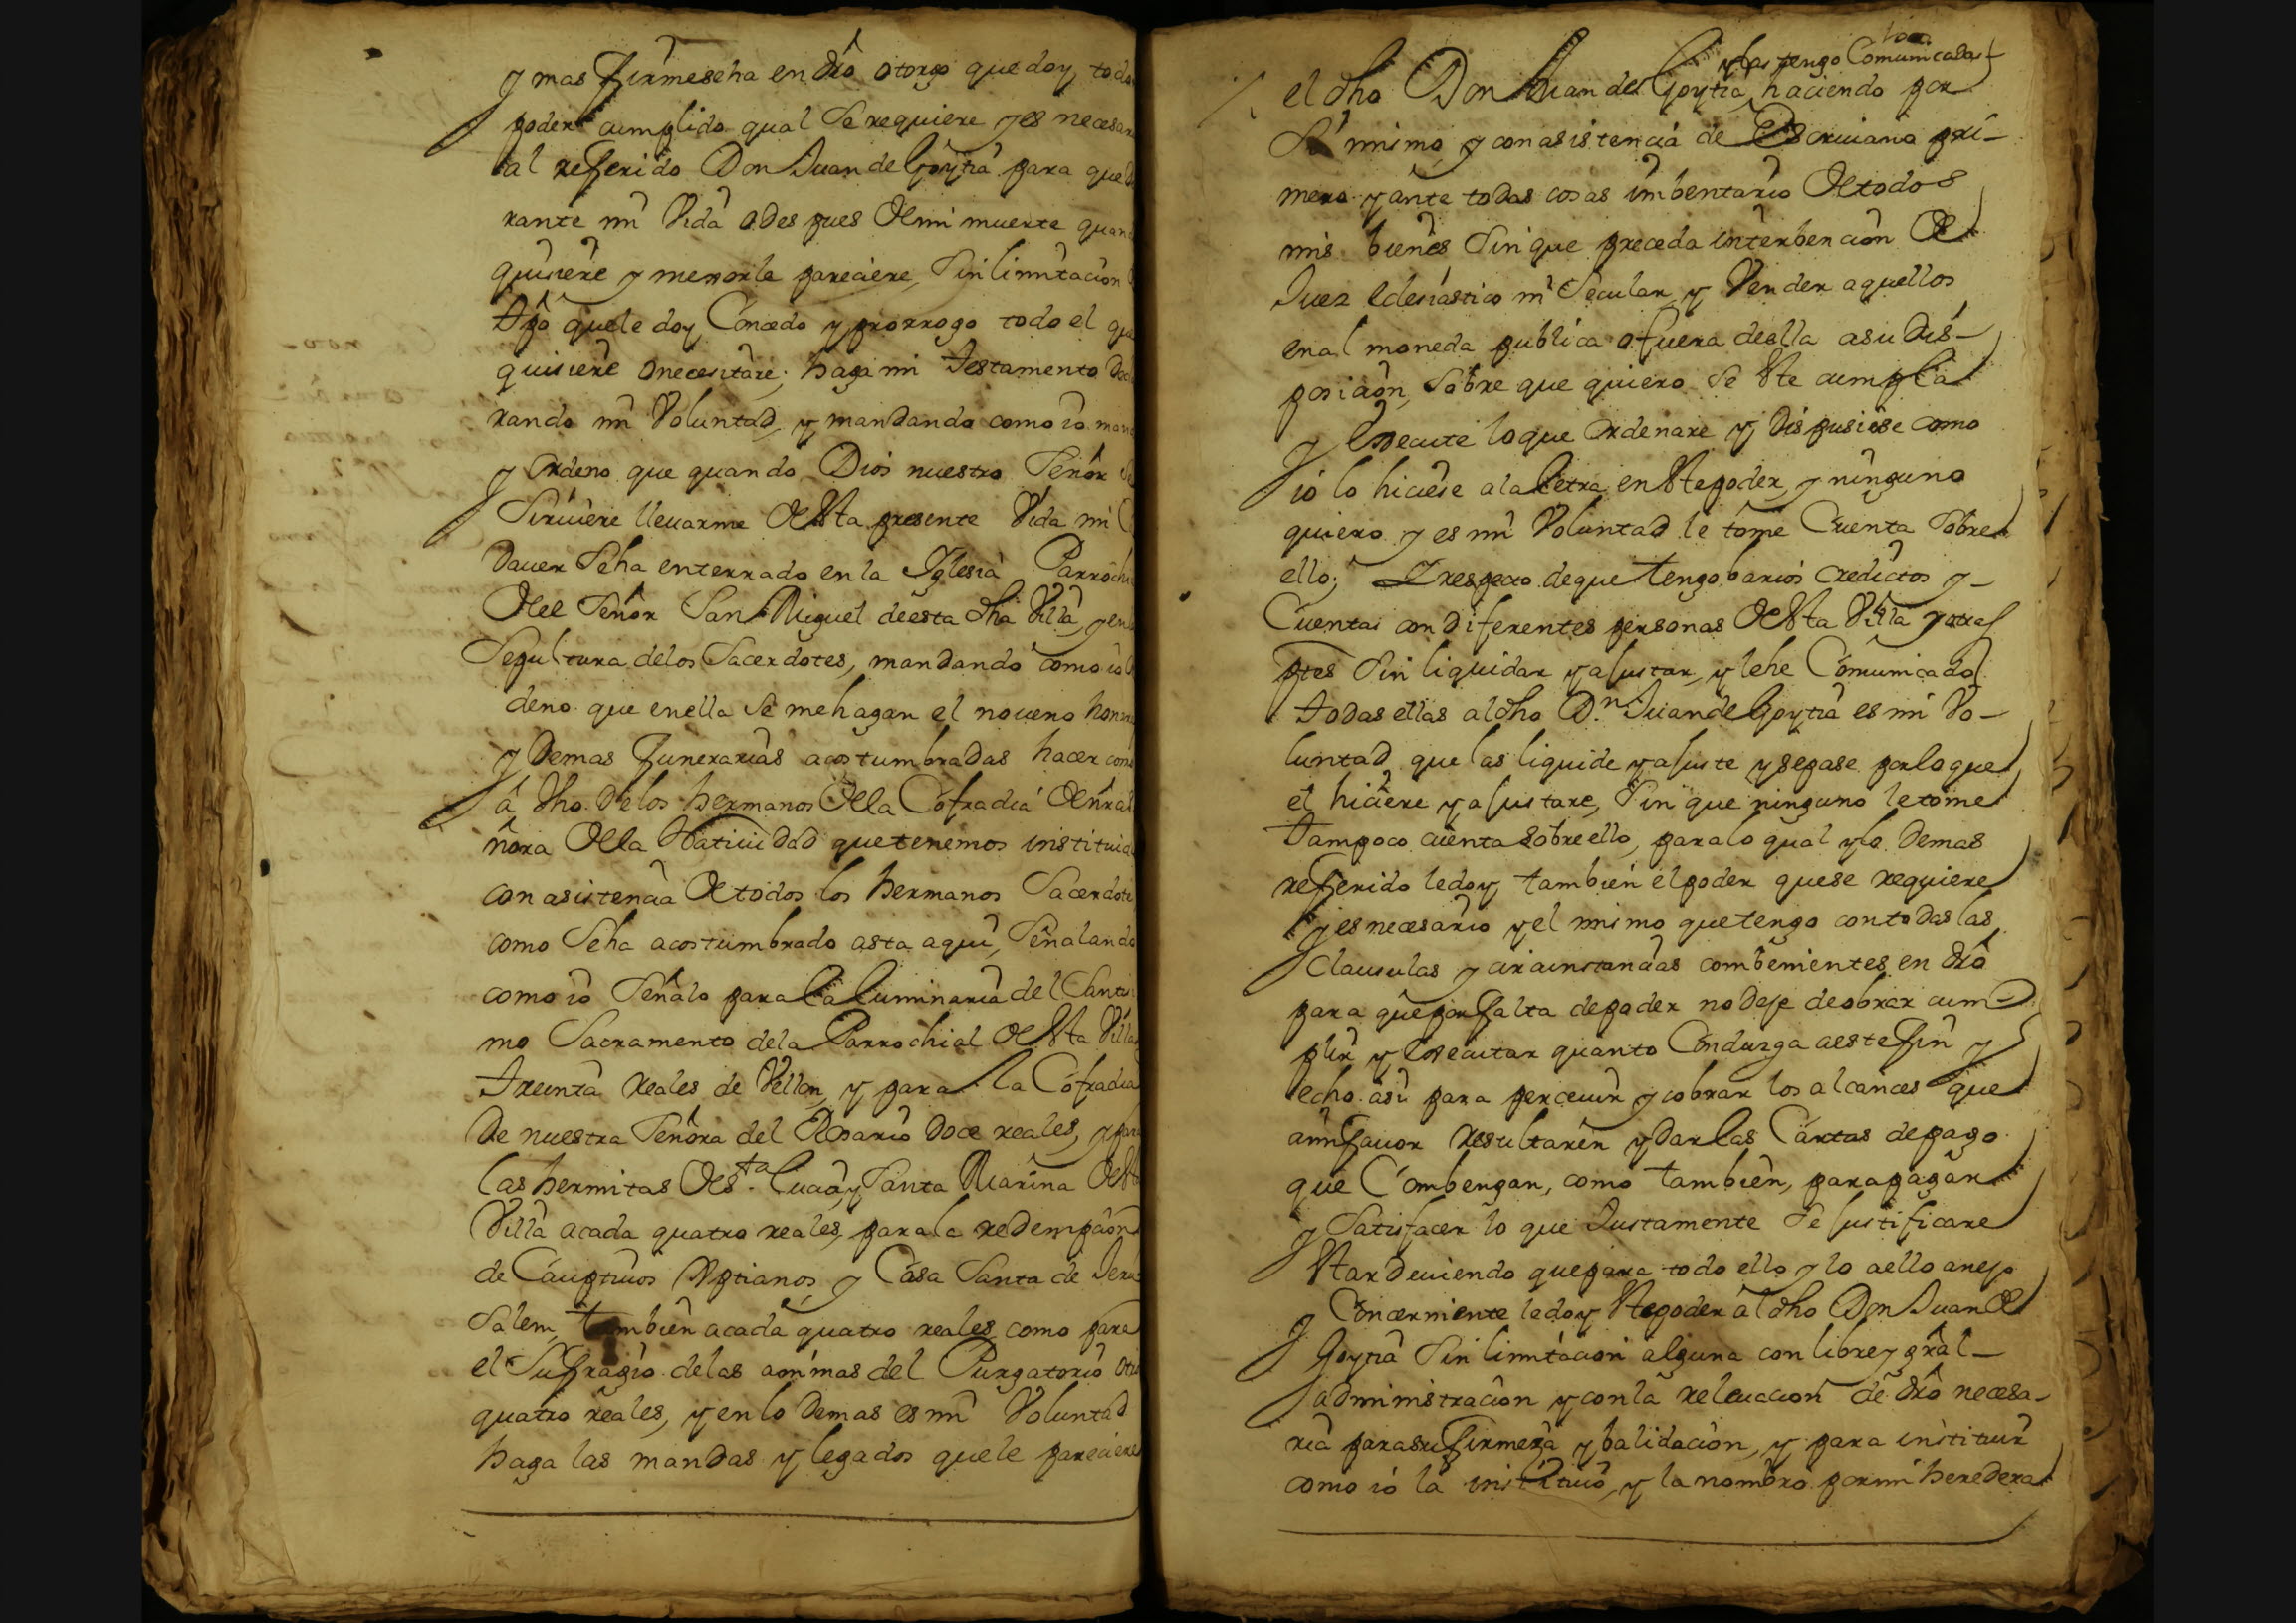 y mas firmeseha en dro otorgo que doy todo
poder cumplido qual Se requiere y es necesar
al referido Don Juan de Goytia para que
rante mi Vida o des pues de mi muerte quan
quisiere y mexorle pareciere, Sin limitacion
tpo que le doy Concedo y prorrogo todo el que
quisiere o necesitare; haga mi testamento Decla
rando mi Voluntad, y mandando como io man
y ordeno que quando Dios nuestro Señor Se
Siruiere lleuarme de esta presente Vida mi
Dauer Seha enterrado en la Iglesia Parrochi
del Señor San Miguel de esta dha Villa, y en
Sepultura delos Sacerdotes, mandando como io
deno que enella Se me hagan el noueno honrr
y Demas funerarias acostumbradas hacer com
â dho. Delos hermanos de la Cofradia de nra
ñora de la Natiuidad que tenemos instituid
con asistencia de todos los hermanos Sacerdote
como Seha acostumbrado asta aqui, Señalando
como io Señalo para la luminaria del Santi
mo Sacramento dela Parrochial de esta Villa
treinta Reales de Vellon, y para la Cofradia
De nuestra Señora del Rosario Doce reales, y para
las hermitas de S.ta Lucia, y Santa Marina de esta
Villa acada quatro reales, para la redempcion
de Cauptiuos Xptianos, y Casa Santa de Jeru
Salem, tambien acada quatro reales como para
el Sufragio delas animas del Purgatorio otr
quatro reales, y en lo Demas es mi Voluntad
haga las mandas y legados que le pareciere
y las tengo Comunicadas
el dho Don Juan de Goytia haciendo por
Si mimo y con asistencia de Escriuano pri-
mero y ante todas cosas imbentario de todos
mis bienes Sin que preceda interbencion de
Juez eclesiastico ni Secular, y Vender aquellos
en al moneda publica o fuera de ella a su Dis-
posicion, Sobre que quiero Se este cumpla
y Execute lo que ordenare y dispusiese como
io lo hiciese a la letra en este poder, y ninguno
quiero y es mi Voluntad le tome Cuenta Sobre
ello; Y respecto de que tengo barios credictos y-
Cuentas con diferentes personas de esta Villa y otras
ptes Sin liquidar y a Justar, y le he Comunicado
todas ellas al dho D.n Juan de Goytia es mi Vo-
luntad que las liquide y a Juste y se pase por lo que
el hiciere y a Justare, Sin que ninguno le tome
tampoco cuenta sobre ello, para lo qual y lo Demas
referido le doy tambien el poder que se requiere
y es necesario y el mimo que tengo con todas las
Clausulas y circunstancias combenientes en dro
para que por falta de poder no deje de obrar cum-
plir y Executar quanto Conduzga a este fin y
echo asi para perceuir y cobrar los alcances que
a mi fauor Resultaren y Dar las Cartas de pago
que Combengan, como tambien, para pagar
y Satisfacer lo que Justamente Se Justificare
estar Deuiendo que para todo ello y lo a ello anejo
y Concerniente le doy este poder al dho Don Juan de
Goytia Sin limitacion alguna con libre y gral-
administracion y con la releuacion de dro necesa-
ria para su firmeza y balidacion, y para instituir
como io la instituio, y la nombro por mi heredera